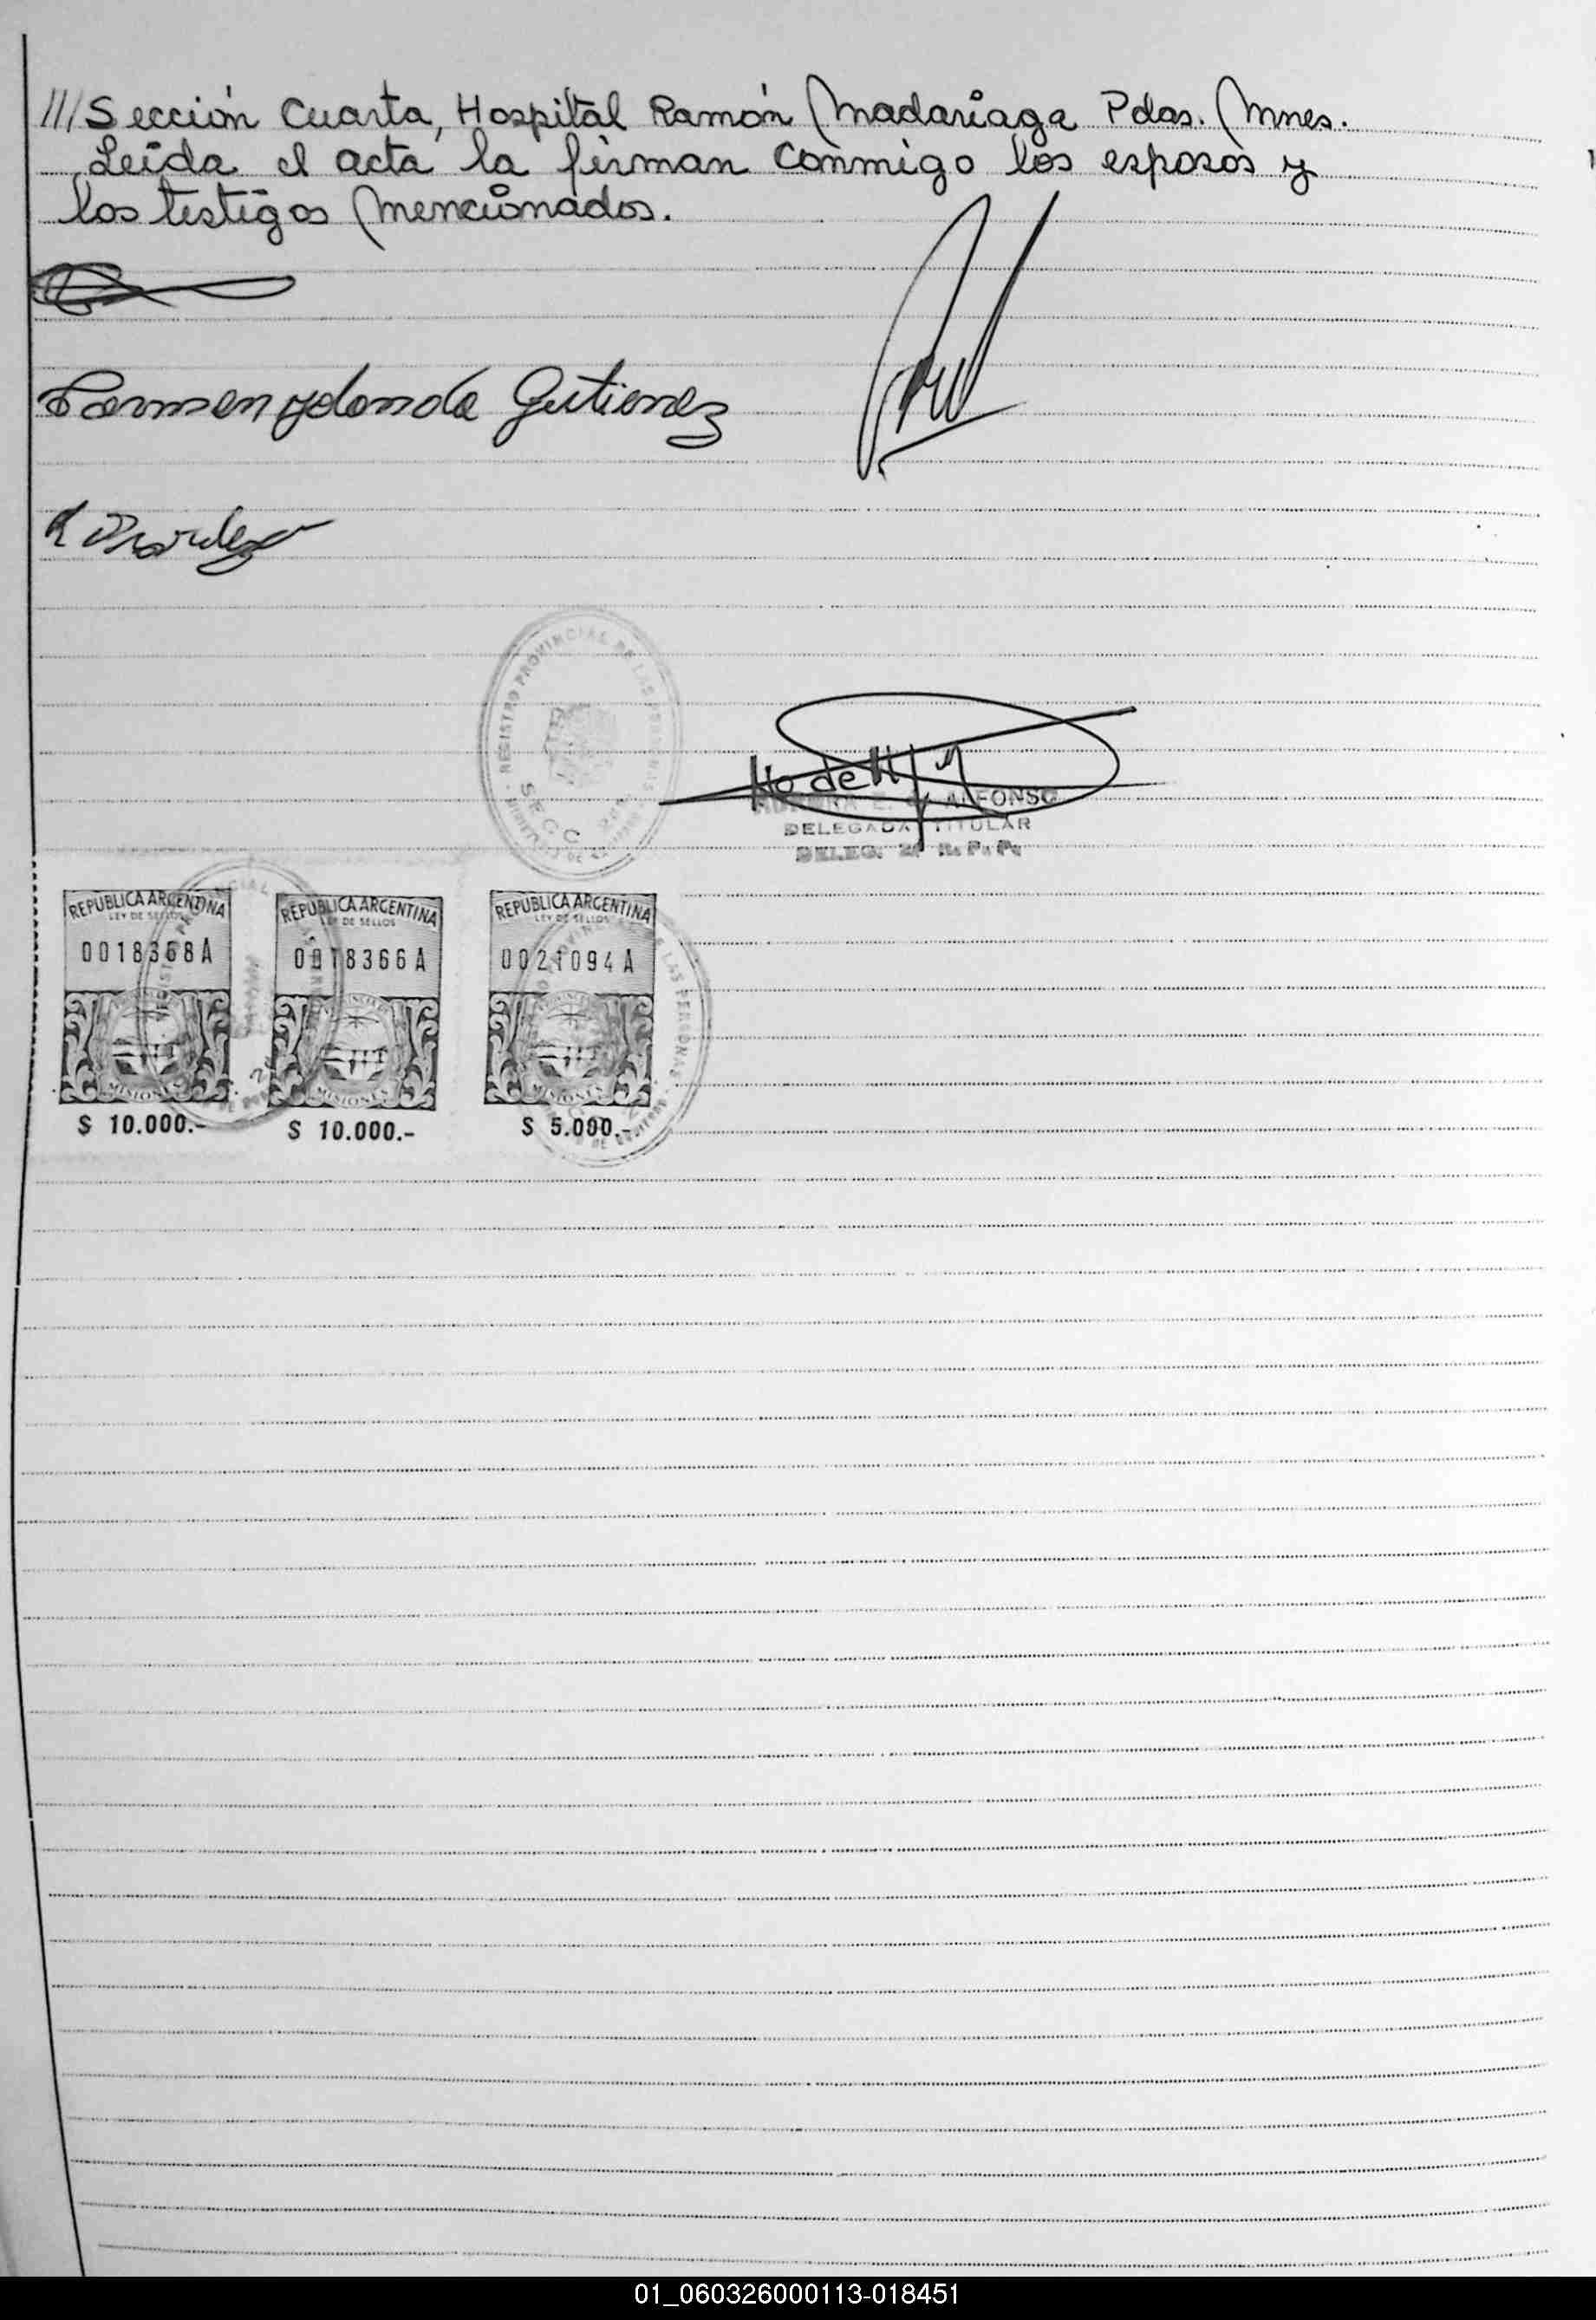 ///Sección Cuarta, Hospital Ramón Madariaga Pdas. Mnes.
Leída el acta la firman conmigo los esposos y
los testigos mencionados.
Carmen yolanda Gutierrez
REGISTRO PROVINCIAL DE LAS PERSONAS
SECC
Ho de
ALFONSO
DELEGADA TITULAR
DELEG.
REPUBLICA ARGENTINA
LEY DE SELLOS
0018368A
MISIONES
$ 10.000.-
REPUBLICA ARGENTINA
LEY DE SELLOS
0018366A
MISIONES
$ 10.000.-
REPUBLICA ARGENTINA
LEY DE SELLOS
0021094A
MISIONES
$ 5.000.-
01_060326000113-018451